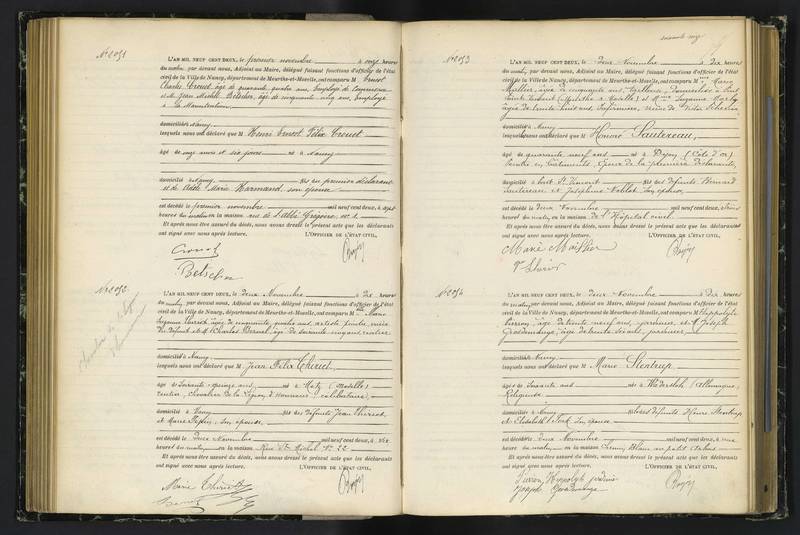 N° 2051
L'AN MIL NEUF CENT DEUX, le premier novembre à onze heures
du matin, par devant nous, Adjoint au Maire, délégué faisant fonctions d'officier de l'état
civil de la Ville de Nancy, département de Meurthe-et-Moselle, ont comparu M Ernest
Charles Crouet, âgé de quarante quatre ans, Employé de Commerce
et M. Jean Betscher, âgé de cinquante cinq ans, Employé
à la Manutention
domiciliés à Nancy
lesquels nous ont déclaré que M Henri Ernest Félix Crouet
âgé de onze mois et six jours né à Nancy
domicilié à Nancy fils du premier déclarant
et de Adèle Marie Harmand, son épouse
est décédé le premier novembre mil neuf cent deux, à sept
heures du matin en la maison rue de l'Abbé Grégoire, n° 1.
Et après nous être assuré du décès, nous avons dressé le présent acte que les déclarants
ont signé avec nous après lecture. L'OFFICIER DE L'ÉTAT CIVIL,
Crouet
Betscher
N° 2052
L'AN MIL NEUF CENT DEUX, le deux Novembre à dix heures
du matin, par devant nous, Adjoint au Maire, délégué faisant fonctions d'officier de l'état
civil de la Ville de Nancy, département de Meurthe-et-Moselle, ont comparu M Marie
Suzanne Thiriet, âgée de cinquante quatre ans, artiste peintre, nièce
du défunt et M. Charles âgé de soixante cinq ans, rentier
domiciliés à Nancy
lesquels nous ont déclaré que M Jean Félix Thiriet
âgé de Soixante-quinze ans né à Metz (Moselle)
rentier, Chevalier de la Légion d'honneur, célibataire,
domicilié à Nancy fils des défunts Jean Thiriet
et Marie son épouse
est décédé le deux Novembre mil neuf cent deux, à six
heures du matin en la maison Rue St. Michel N° 22
Et après nous être assuré du décès, nous avons dressé le présent acte que les déclarants
ont signé avec nous après lecture. L'OFFICIER DE L'ÉTAT CIVIL,
Marie Thiriet
N° 2053
L'AN MIL NEUF CENT DEUX, le deux Novembre à dix heures
du matin, par devant nous, Adjoint au Maire, délégué faisant fonctions d'officier de l'état
civil de la Ville de Nancy, département de Meurthe-et-Moselle, ont comparu M Marie
âgée de cinquante ans, domiciliée à Pont
Saint Vincent (Meurthe & Moselle) et Suzanne
âgée de trente huit ans, Infirmière, de Victor
domiciliés à Nancy
lesquels nous ont déclaré que M Honoré Sautereau,
âgé de quarante neuf ans né à Dijon (Côte d'Or)
Peintre en bâtiments, époux de la première déclarante,
domicilié à Pont St. Vincent fils des défunts Bernard
Sautereau et Joséphine Noblot son épouse
est décédé le deux Novembre mil neuf cent deux, à
heures du matin, en la maison de l'Hôpital civil
Et après nous être assuré du décès, nous avons dressé le présent acte que les déclarants
ont signé avec nous après lecture. L'OFFICIER DE L'ÉTAT CIVIL,
Marie
N° 2054
L'AN MIL NEUF CENT DEUX, le deux Novembre à dix heures
du matin, par devant nous, Adjoint au Maire, délégué faisant fonctions d'officier de l'état
civil de la Ville de Nancy, département de Meurthe-et-Moselle, ont comparu M Hippolyte
Pierron, âgé de trente neuf ans, jardinier, et M. Joseph
âgé de trente ans, jardinier,
domiciliés à Nancy
lesquels nous ont déclaré que M Marie Stentrup
âgée de Soixante ans née à (Allemagne)
Religieuse
domiciliée à Nancy fille des défunts Henri Stentrup
et Elisabeth son épouse
est décédée le deux Novembre mil neuf cent deux, à
heures du matin en la maison
Et après nous être assuré du décès, nous avons dressé le présent acte que les déclarants
ont signé avec nous après lecture. L'OFFICIER DE L'ÉTAT CIVIL,
Pierron Hippolyte
Joseph